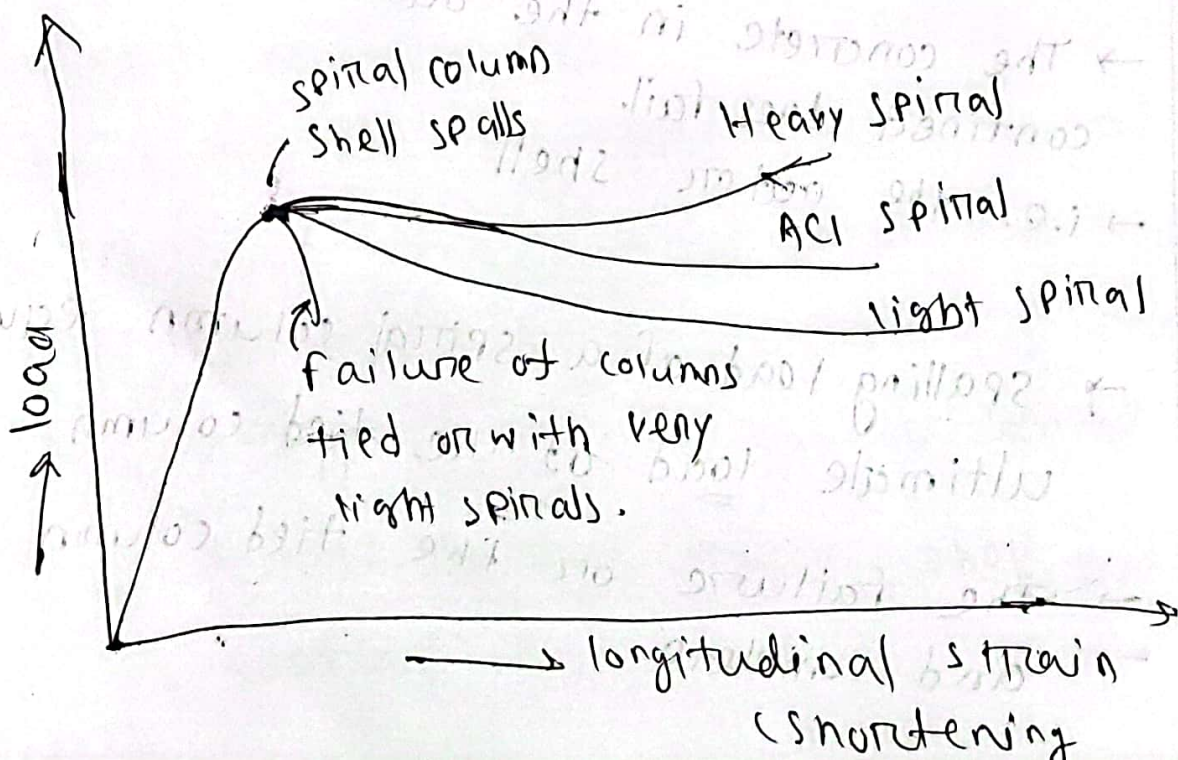 spiral column
shell spalls
Heavy spiral
ACI spiral
light spiral
failure of columns
tied or with very
light spirals.
load
longitudinal strain
(shortening